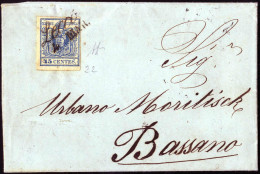 45 CENTES
22
Sig.
Urbano Moritisch
Bassano